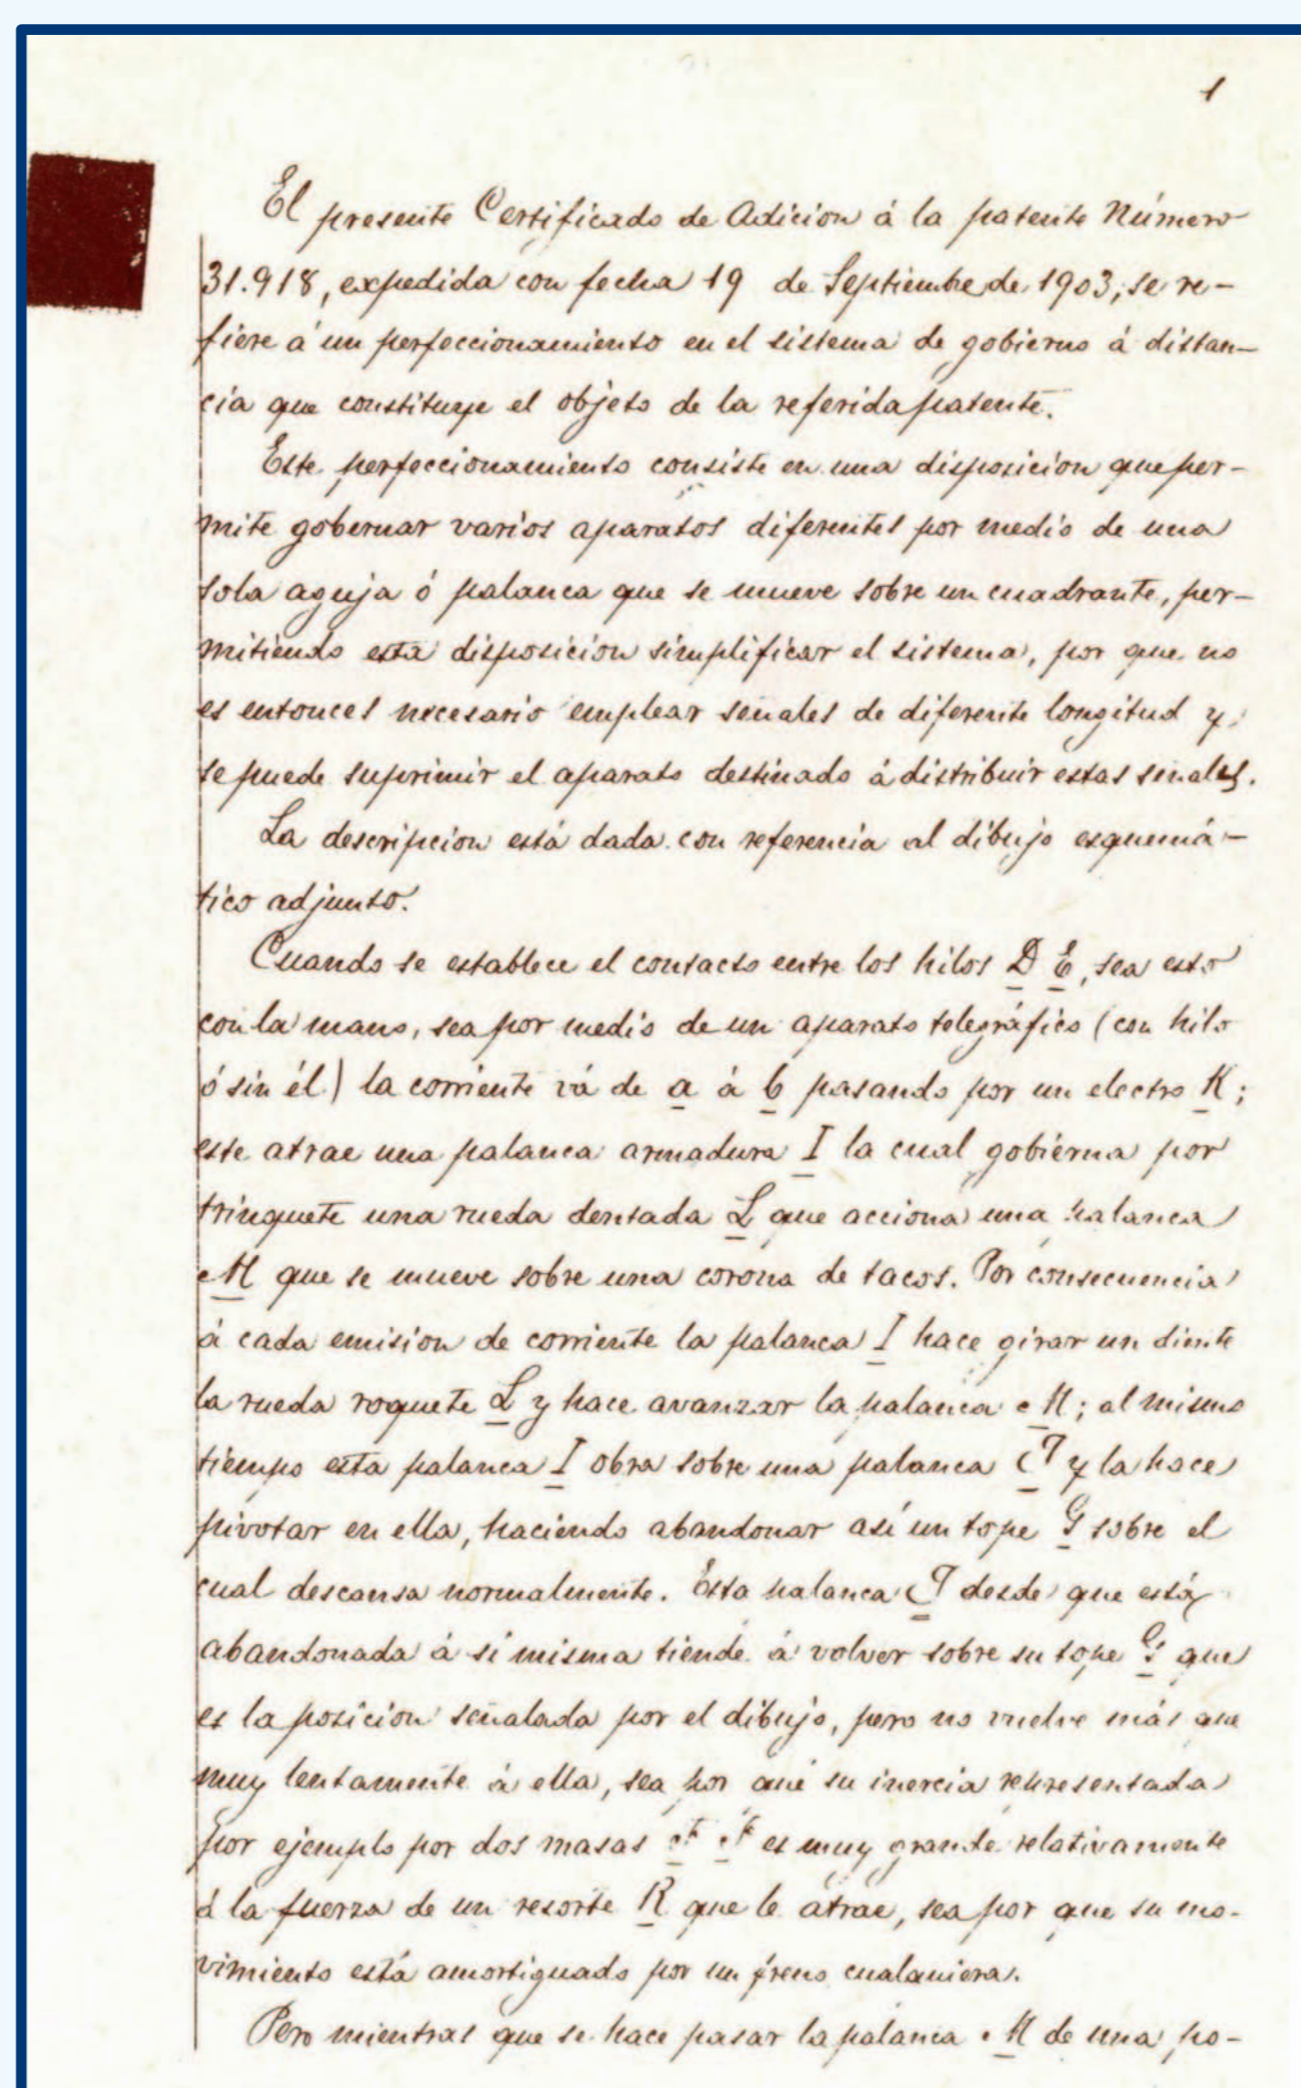 1
El presente Certificado de Adicion á la patente Número
31.918, expedida con fecha 19 de Septiembre de 1903, se re-
fiere á un perfeccionamiento en el sistema de gobierno á distan-
cia que constituye el objeto de la referida patente.
Este perfeccionamiento consiste en una disposicion que per-
mite gobernar varios aparatos diferentes por medio de una
sola aguja ó palanca que se mueve sobre un cuadrante, per-
mitiendo esta disposicion simplificar el sistema, por que no
es entonces necesario emplear señales de diferente longitud y
se puede suprimir el aparato destinado á distribuir estas señales.
La descripcion está dada con referencia al dibujo esquemá-
tico adjunto.
Cuando se establece el contacto entre los hilos D E, sea esto
con la mano, sea por medio de un aparato telegráfico (con hilo
ó sin él) la corriente vá de a á b pasando por un electro K;
este atrae una palanca armadura I la cual gobierna por
trinquete una rueda dentada L que acciona una palanca
M que se mueve sobre una corona de tacos. Por consecuencia
á cada emision de corriente la palanca I hace girar un diente
la rueda roquete L y hace avanzar la palanca M; al mismo
tiempo esta palanca I obra sobre una palanca T y la hace
pivotar en ella, haciendo abandonar asi un tope G sobre el
cual descansa normalmente. Esta palanca T desde que está
abandonada á si misma tiende á volver sobre su tope G que
es la posicion señalada por el dibujo, pero no vuelve más que
muy lentamente á ella, sea por que su inercia representada
por ejemplo por dos masas F F es muy grande relativamente
á la fuerza de un resorte R que le atrae, sea por que su mo-
vimiento está amortiguado por un freno cualquiera.
Pero mientras que se hace pasar la palanca M de una po-